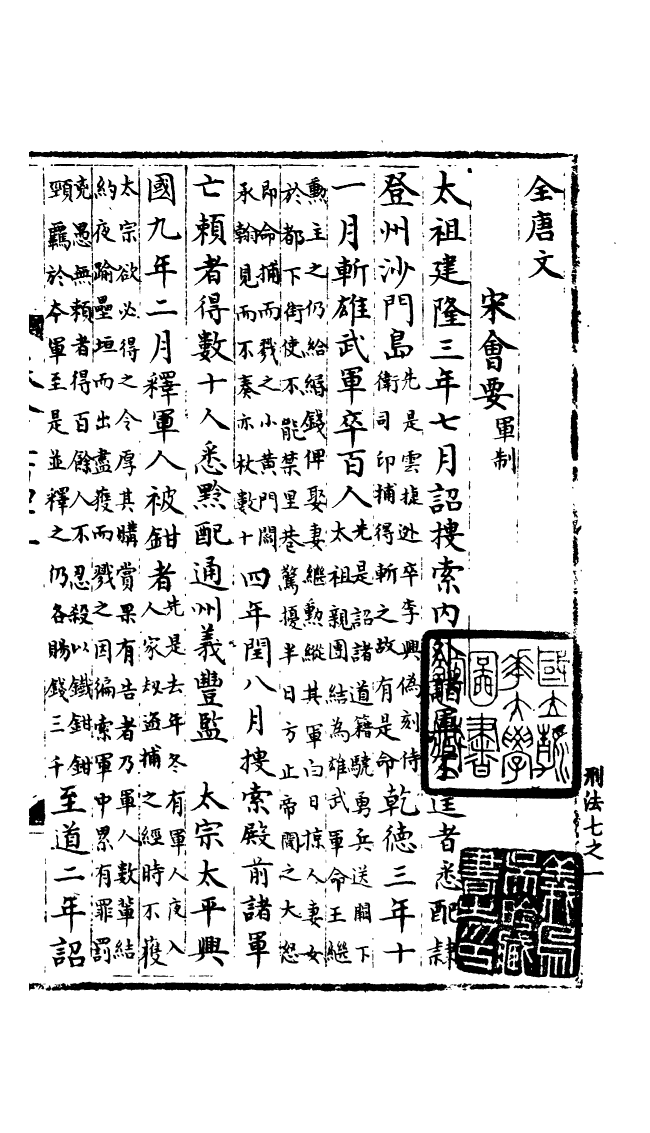 刑法七之一
全唐文
宋會要 軍制
太祖建隆三年七月詔搜索內外諸軍不逞者悉配隸
登州沙門島
先是雲捷逃卒李興偽刻侍
衛司印捕得斬之故有是命
乾德三年十
一月斬雄武軍卒百人
先是詔諸道籍驍勇兵送闕下
太祖親團結為雄武軍命王繼
勳主之仍給緡錢俾娶妻繼勳縱其軍白日掠人妻女
於都下街使不能禁里巷驚擾半日方止帝聞之大怒
即命捕而戮之小黃門閻
承翰見而不奏亦杖數十
四年閏八月搜索殿前諸軍
亡賴者得數十人悉黥配通州義豐監 太宗太平興
國九年二月釋軍人被鉗者
先是去年冬有軍人夜入
人家劫盜捕之經時不獲
太宗欲必得之令厚其購賞果有告者乃軍人數輩結
約夜踰壘垣而出盡獲而戮之因徧索軍中累有罪罰
兇愚無賴者得百餘人不忍殺以鐵鉗鉗
頸羈於本軍至是並釋之仍各賜錢三千
至道二年詔